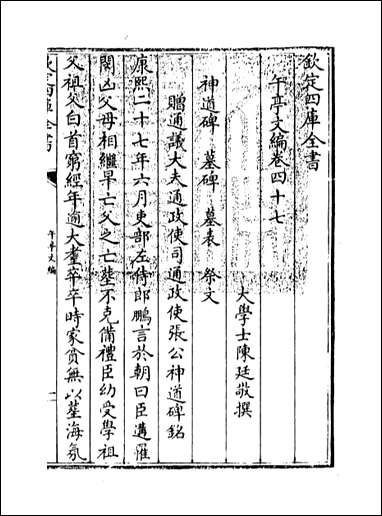 欽定四庫全書
午亭文編卷四十七
大學士陳廷敬撰
神道碑 墓碑 墓表 祭文
贈通議大夫通政使司通政使張公神道碑銘
康熙二十七年六月吏部左侍郎鵬言於朝曰臣遘罹
閔凶父母相繼早亡父之亡塟不克備禮臣幼受學祖
父祖父白首窮經年逾大耋卒卒時家貧無以塟海氛
午亭文編